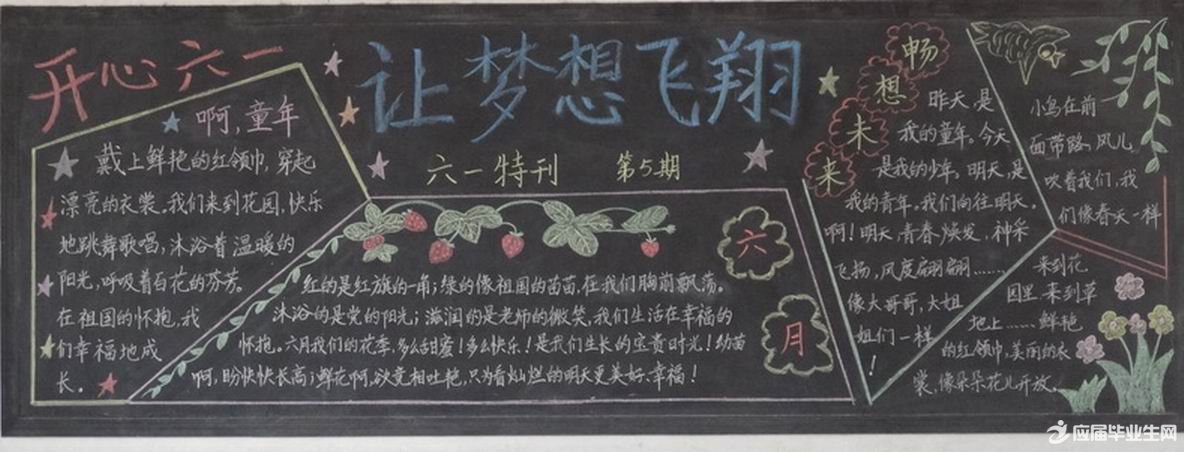 开心六一
让梦想飞翔
六一特刊 第5期
啊,童年
戴上鲜艳的红领巾,穿起
漂亮的衣裳。我们来到花园,快乐
地跳舞歌唱,沐浴着温暖的
阳光,呼吸着百花的芬芳。
在祖国的怀抱,我
们幸福地成
长。
六
月
红的是红旗的一角;绿的像祖国的苗苗,在我们胸前飘荡。
沐浴的是党的阳光;滋润的是老师的微笑,我们生活在幸福的
怀抱。六月我们的花季,多么甜蜜!多么快乐!是我们生长的宝贵时光!幼苗
啊,盼快快长高;鲜花啊,欲竞相吐艳,只为看灿烂的明天更美好、幸福!
畅
想
未
来
昨天,是
我的童年。今天
是我的少年。明天,是
我的青年。我们向往明天。
啊!明天,青春焕发,神采
飞扬,风度翩翩……
像大哥哥,大姐
姐们一样
!
小鸟在前
面带路,风儿
吹着我们,我
们像春天一样
来到花
园里,来到草
地上……鲜艳
的红领巾,美丽的衣
裳,像朵朵花儿开放。
应届毕业生网